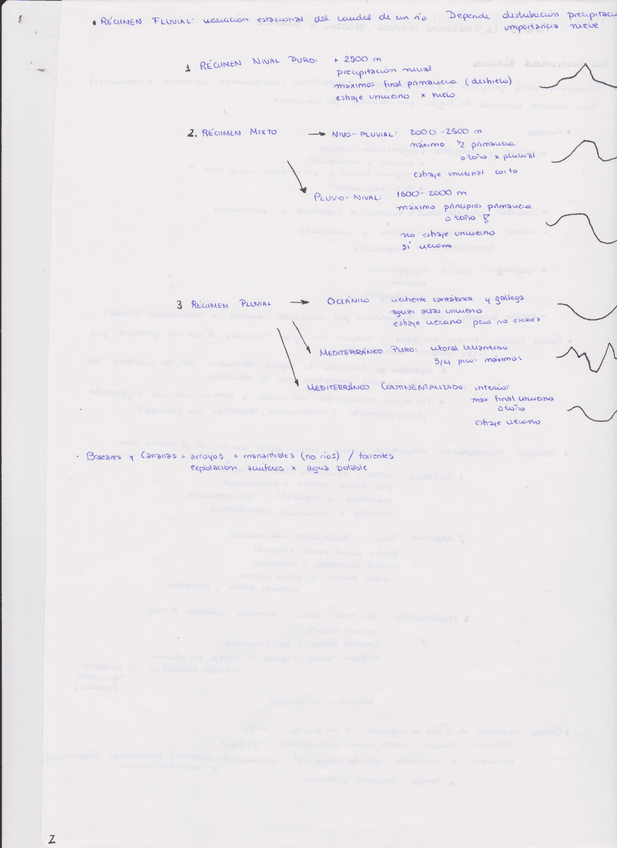 • RÉGIMEN FLUVIAL: variación estacional del caudal de un río. Depende distribución precipitac
importancia nieve
1 RÉGIMEN NIVAL PURO: + 2500 m
precipitación nival
máximos final primavera (deshielo)
estiaje invierno x hielo
2. RÉGIMEN MIXTO → NIVO-PLUVIAL: 2000-2500 m
máximo 1/2 primavera
otoño x pluvial
estiaje invernal corto
PLUVIO-NIVAL: 1600-2000 m
máximo principios primavera
otoño
no estiaje invierno
sí verano
3 RÉGIMEN PLUVIAL → OCEÁNICO: vertiente cantábrica y gallega
aguas altas invierno
estiaje verano pero no escasez
MEDITERRÁNEO PURO: litoral levantino
3/4 picos máximos
MEDITERRÁNEO CONTINENTALIZADO: interior
max final invierno
otoño
estiaje verano
• Baleares y Canarias = arroyos x manantiales (no ríos) / torrentes
explotación acuíferos x agua potable
2